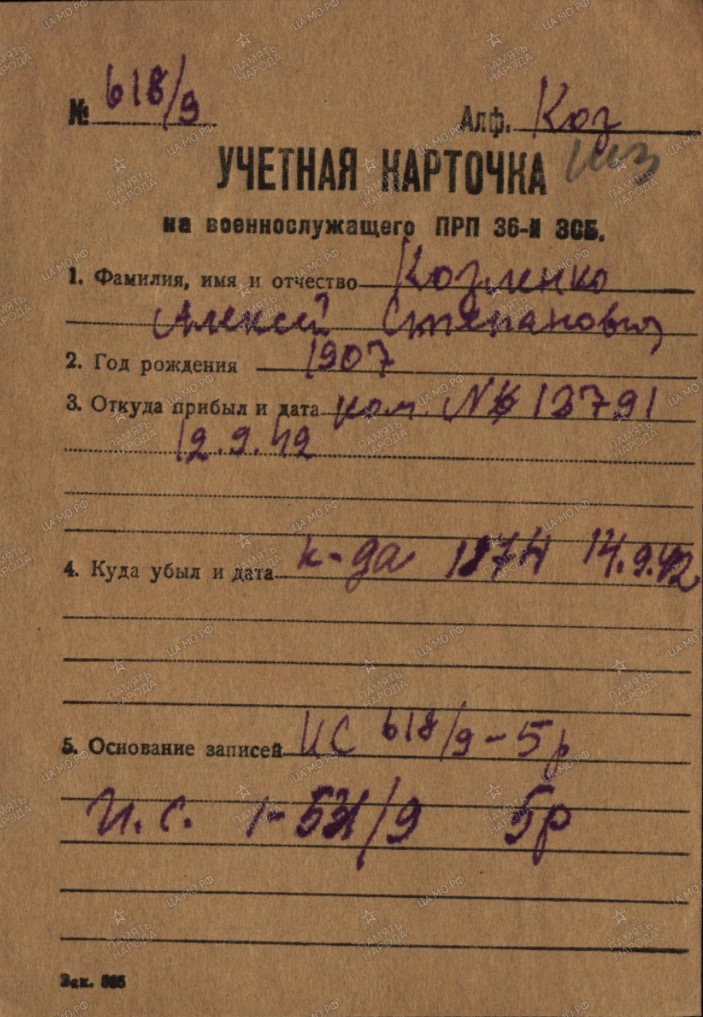 № 618/9 Алф. Коз
УЧЕТНАЯ КАРТОЧКА
на военнослужащего ПРП 36-й ЗСБ.
1. Фамилия, имя и отчество Козленко
Алексей Степанович
2. Год рождения 1907
3. Откуда прибыл и дата ком. № 13791
12.9.42
4. Куда убыл и дата к-да 1874 14.9.42
5. Основание записей ИС 618/9-5р
И.С. 1- /9 5р
Зак.